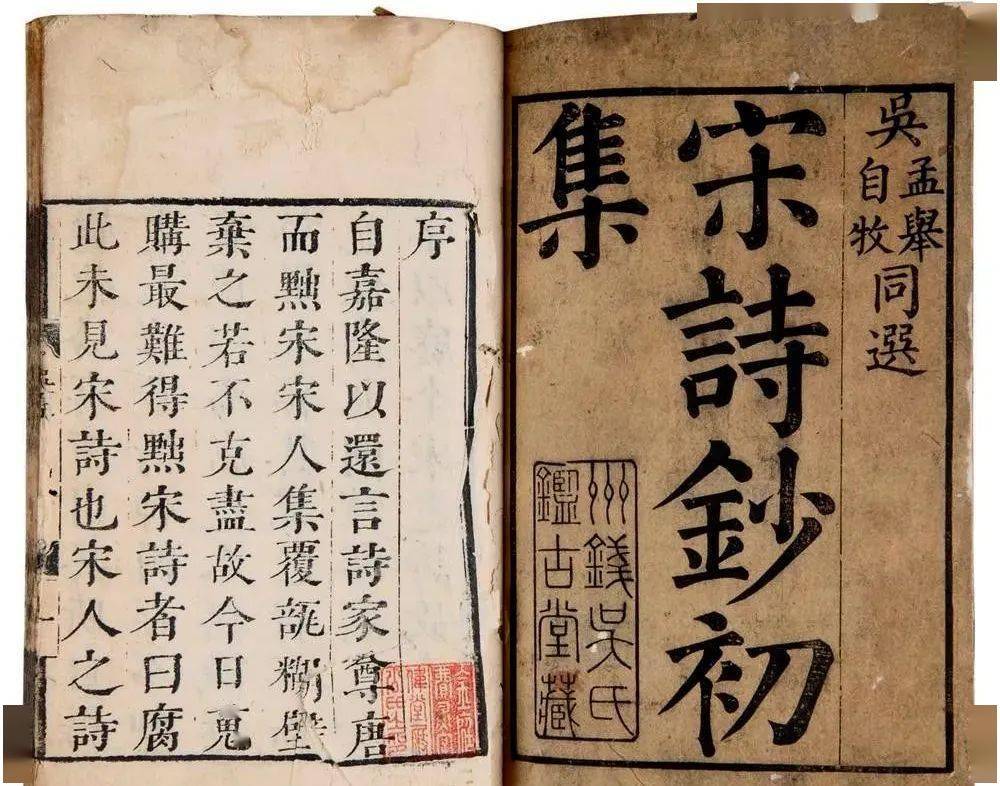 吳孟舉自牧同選
宋詩鈔初
集
州錢吳氏
鑑古堂藏
序
自嘉隆以還言詩家尊唐
而黜宋宋人集覆瓿糊壁
棄之若不克盡故今日蒐
購最難得黜宋詩者曰腐
此未見宋詩也宋人之詩